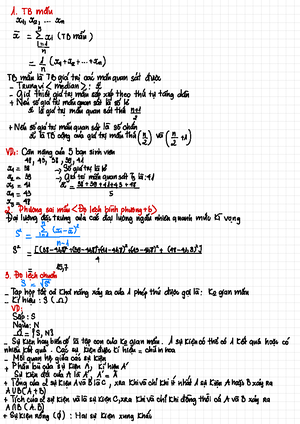 1. TB mẫu
x1, x2, ... xn
x̄ = Σ xi (TB mẫu)
i=1
n
= 1/n (x1+x2+...+xn)
TB mẫu là TB giá trị các mẫu quan sát được
- Trung vị <median>: x̃
- Giả thiết giá trị mẫu sắp xếp theo thứ tự tăng dần
+ Nếu số giá trị mẫu quan sát là số lẻ
x̃ là giá trị mẫu quan sát thứ n+1/2
+ Nếu số giá trị mẫu quan sát là số chẵn
x̃ là TB cộng của giá trị mẫu thứ (n/2) và (n/2 +1)
VD1: Cân nặng của 5 bạn sinh viên
x1 = 38 → Số giá trị lẻ
x2 = 39 → Giá trị mẫu quan sát
x3 = 41
x4 = 45
2. Phương sai mẫu <Độ lệch bình phương tb>
Đại lượng đặc trưng của các đại lượng ngẫu nhiên quanh mẫu kì vọng
S² = Σ (xi - x̄)²
n-1
4
3. Độ lệch chuẩn
S = √S²
- Tập hợp tất cả khả năng xảy ra của 1 phép thử được gọi là: Kg gian mẫu
- Kí hiệu: S (Ω)
VD:
Sấp: S
Ngửa: N
Ω = {S, N}
- Sự kiện hay biến cố là tập con của Kg gian mẫu. 1 sự kiện có thể có 1 kết quả hoặc có
nhiều kết quả. Các sự kiện được kí hiệu = chữ in hoa
- Mối quan hệ giữa các sự kiện
+ Phần bù của sự kiện A, kí hiệu A'
Sự kiện đối của A là A', A' = Ā
+ Tổng của 2 sự kiện A và B là C, xra khi và chỉ khi ít nhất 1 sự kiện A hoặc B xảy ra
AUB (A+B)
+ Tích của 2 sự kiện và là sự kiện C, xra khi và chỉ khi đồng thời cả A và B xảy ra
A∩B (A.B)
+ Sự kiện rỗng (∅): Hai sự kiện xung khắc